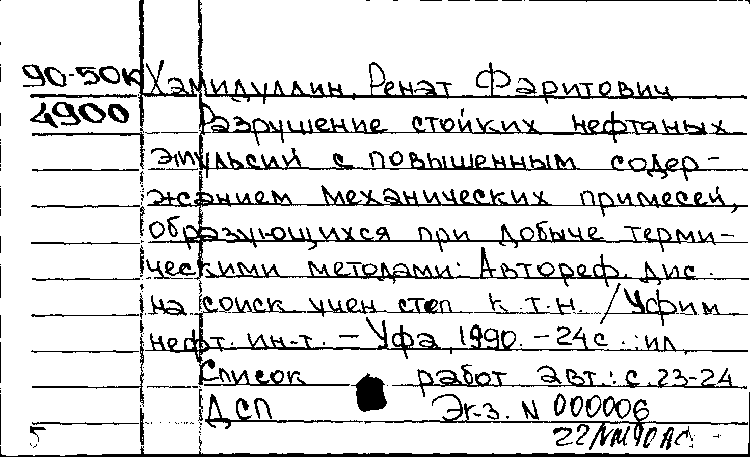 90-50к Хамидуллин, Ренат Фаритович
4900 Разрушение стойких нефтяных
эмульсий с повышенным содер-
жанием механических примесей,
образующихся при добыче терми-
ческими методами: Автореф. дис.
на соиск учен степ к.т.н. / Уфим
нефт. ин-т. – Уфа, 1990. – 24с.: ил.
Список работ авт.: с. 23-24
ДСП Экз. N 000006
5